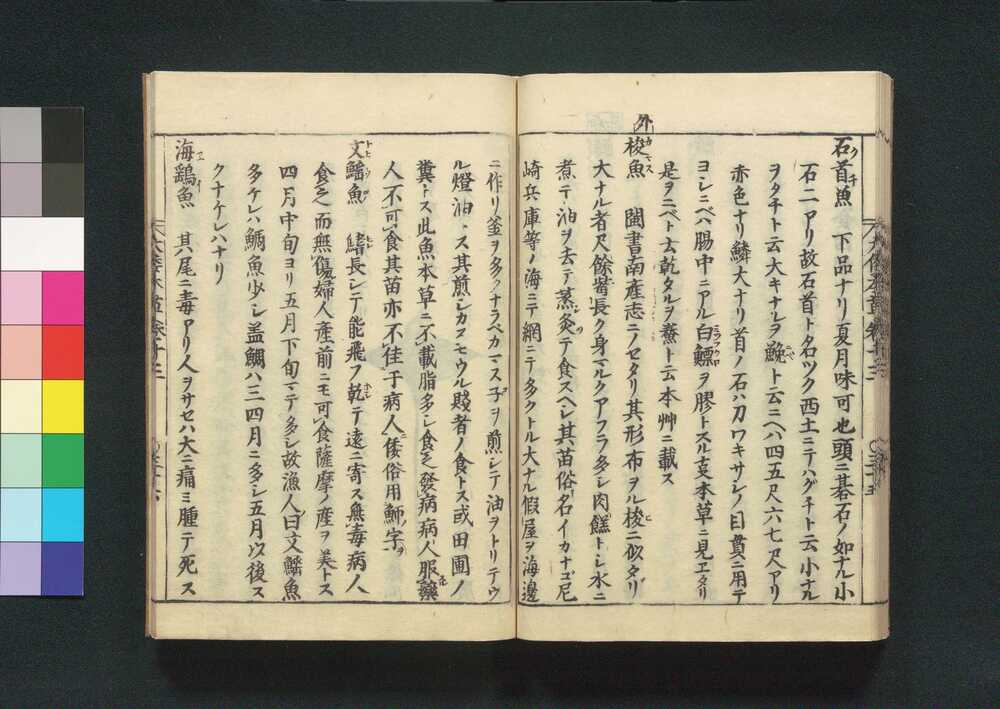 石首魚 クチ 下品ナリ夏月味可也頭ニ碁石ノ如ナル小
石二アリ故石首ト名ツク西土ニテハグチト云小ナル
ヲタチト云大キナルヲ鮸ト云ニヘハ四五尺六七尺アリ
赤色ナリ鱗大ナリ首ノ石ハ刀ワキサシノ目貫ニ用テ
ヨシニベハ腸中ニアル白鰾ヲ膠トスル支本草ニ見エタリ
是ヲニベト云乾タルヲ鯗ト云本艸ニ載ス
外
梭魚 カマス 閩書南産志ニノセタリ其形布ヲヲル梭ニ似タリ
大ナル者尺餘觜長ク身マルクアフラ多シ肉餻トシ水ニ
煮テ油ヲ去テ蒸灸テ食スヘシ其苗俗名イカナゴ尼
崎兵庫等ノ海ニテ網ニテ多クトル大ナル假屋ヲ海邊
ニ作リ釜ヲ多クナラベカマス子ヲ煎シテ油ヲトリテウ
ル燈油トス其煎シカスモウル賤者ノ食トス或田圃ノ
糞トス此魚本草ニ不載脂多シ食之發病病人服藥
人不可食其苗亦不佳于病人倭俗用魳字ヲ
文鰩魚 トヒウヲ 鰭長シテ能飛フ乾テ遠ニ寄ス無毒病人
食之而無傷婦人産前ニモ可食薩摩ノ産ヲ美トス
四月中旬ヨリ五月下旬マテ多シ故漁人曰文鰩魚
多ケレハ鯛魚少シ盖鯛ハ三四月ニ多シ五月以後ス
クナケレハナリ
海鷂魚 エイ 其尾ニ毒アリ人ヲサセハ大ニ痛ミ腫テ死ス